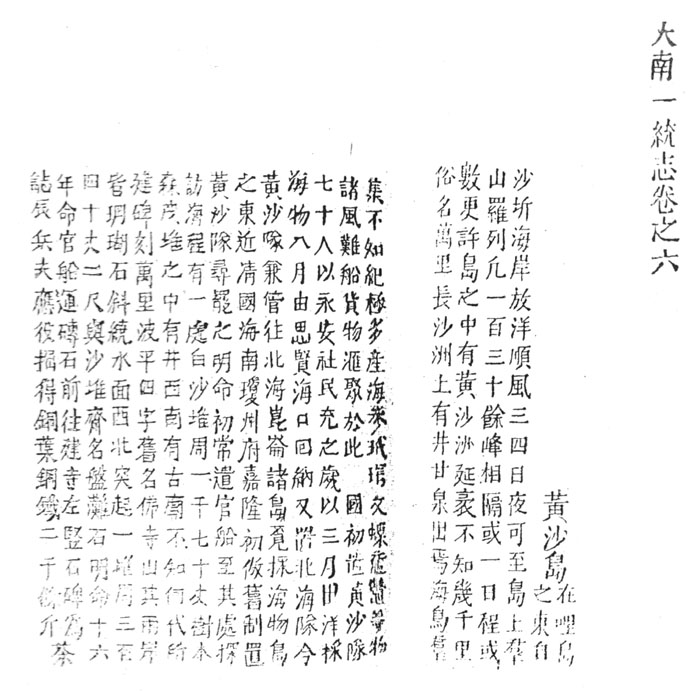 大南一統志卷之六
黃沙島 在哩島
之東自
沙圻海岸放洋順風三四日夜可至島上羣
山羅列凢一百三十餘峰相隔或一日程或
數更許島之中有黃沙洲延袤不知幾千里
俗名萬里長沙洲上有井甘泉出焉海鳥羣
集不知紀極多產海參玳瑁文螺黿鼈等物
諸風難船貨物滙聚於此 國初置黃沙隊
七十人以永安社民充之歲以三月出洋採
海物八月由思賢海口回納又置北海隊令
黃沙隊兼管往北海崑崙諸島覓採海物島
之東近清國海南瓊州府嘉隆初倣舊制置
黃沙隊尋罷之明命初常遣官船至其處探
訪海程有一處白沙堆周一千七十丈樹木
森茂堆之中有井西南有古廟不知何代所
建碑刻萬里波平四字舊名佛寺山其兩岸
皆珊瑚石斜繞水面西北突起一堆周三百
四十丈二尺與沙堆齊名盤灘石明命十六
年命官船運磚石前往建寺左竪石碑爲
誌辰兵夫應役掘得銅葉銅鐵二千餘斤